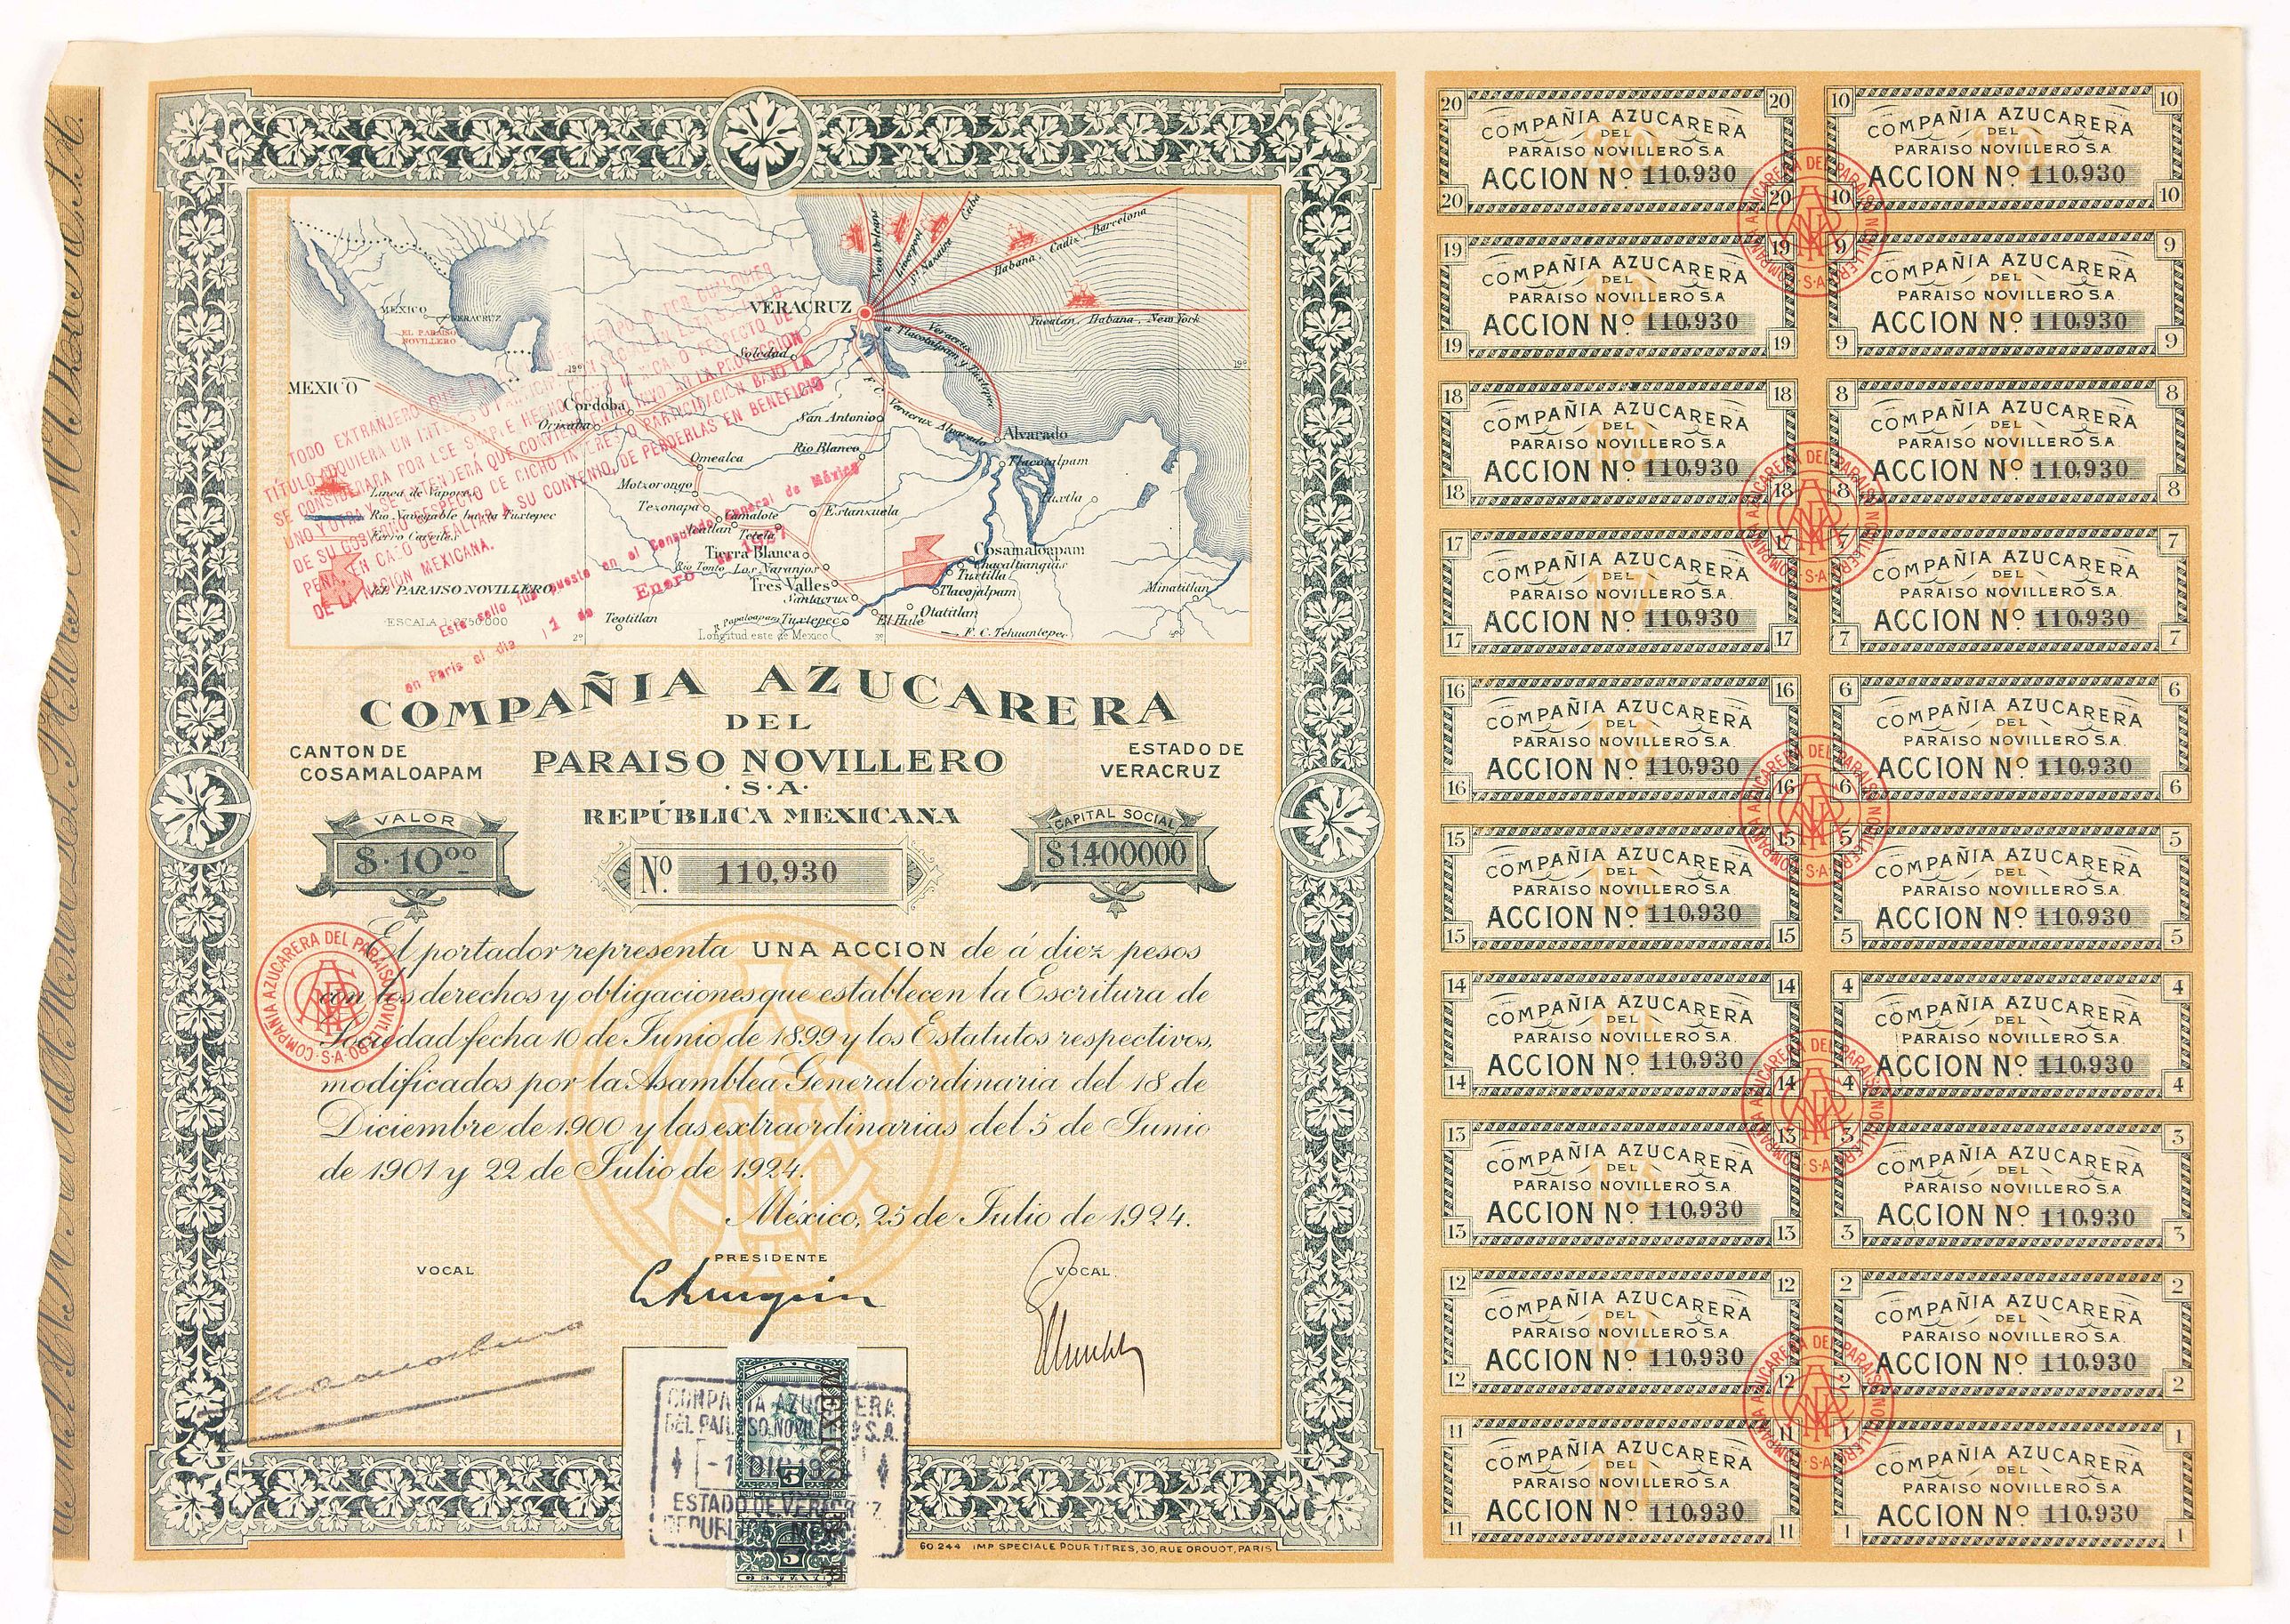 New Orleans
Liverpool
St Nazaire
Cuba
Habana, Cadiz, Barcelona
VERACRUZ
Yucatan, Habana, New York
MEXICO
VERACRUZ
EL PARAISO
NOVILLERO
Veracruz
a Tlacotalpam y Tuxtepec
Soledad
19º
19º
MEXICO
Cordoba
Orizaba
San Antonio
F.C. Veracruz Alvarado
Alvarado
Rio Blanco
Omealca
Tlacotalpam
Motzorongo
Tuxtla
Linea de Vapores
Tezonapa
Camalote
Estanzuela
Rio Navegable hasta Tuxtepec
Tetela
Ferro Carriles
Tierra Blanca
Cosamaloapam
Chacaltianguis
Rio Tonto
Los Naranjos
Tuxtilla
Tres Valles
Tlacojalpam
Minatitlan
EL PARAISO NOVILLERO
Santacruz
Otatitlan
Teotitlan
R. Papaloapam
Tuxtepec
El Hule
2º
Longitud este de Mexico
3º
F. C. Tehuantepec
TODO EXTRANJERO QUE
TÍTULO ADQUIERA UN INTERES O PARTICIPACION SOCIAL EN
SE CONSIDERARA POR ESE SIMPLE HECHO COMO MEXICANO RESPECTO DE
UNO Y OTRA Y SE ENTENDERÁ QUE CONVIENE EN NO INVOCAR LA PROTECCION
DE SU GOBIERNO RESPECTO DE DICHO INTERES O PARTICIPACION BAJO LA
PENA, EN CASO DE FALTAR A SU CONVENIO, DE PERDERLAS EN BENEFICIO
DE LA NACION MEXICANA.
Este sello fue puesto en el Consulado General de México
en Paris el dia 1 de Enero de 1927
COMPAÑIA AZUCARERA
DEL
CANTON DE
COSAMALOAPAM
PARAISO NOVILLERO
ESTADO DE
VERACRUZ
·S·A·
REPÚBLICA MEXICANA
VALOR
$·10ºº
Nº 110,930
CAPITAL SOCIAL
$1400000
El portador representa UNA ACCION de á diez pesos
con los derechos y obligaciones que establecen la Escritura de
Sociedad fecha 10 de Junio de 1899 y los Estatutos respectivos,
modificados por la Asamblea General ordinaria del 18 de
Diciembre de 1900 y las extraordinarias del 5 de Junio
de 1901 y 22 de Julio de 1924.
México, 25 de Julio de 1924.
COMPAÑIA AZUCARERA DEL PARAISO NOVILLERO·S·A·
VOCAL
PRESIDENTE
VOCAL
MEXICO
5
5
COMPAÑIA AZUCARERA
DEL PARAISO NOVILLERO S.A.
-1 DIC 19
ESTADO DE VERACRUZ
REPUBLICA MEXIC
60 244 IMP. SPECIALE POUR TITRES, 30, RUE DROUOT, PARIS
20 20
COMPAÑIA AZUCARERA
DEL
PARAISO NOVILLERO S.A
ACCION Nº 110,930
20 20
10 10
COMPAÑIA AZUCARERA
DEL
PARAISO NOVILLERO S.A.
ACCION Nº 110,930
10 10
19 19
COMPAÑIA AZUCARERA
DEL
PARAISO NOVILLERO S.A
ACCION Nº 110,930
19 19
9 9
COMPAÑIA AZUCARERA
DEL
PARAISO NOVILLERO S.A.
ACCION Nº 110,930
9 9
18 18
COMPAÑIA AZUCARERA
DEL
PARAISO NOVILLERO S.A
ACCION Nº 110,930
18 18
8 8
COMPAÑIA AZUCARERA
DEL
PARAISO NOVILLERO S.A.
ACCION Nº 110,930
8 8
17 17
COMPAÑIA AZUCARERA
DEL
PARAISO NOVILLERO S.A.
ACCION Nº 110,930
17 17
7 7
COMPAÑIA AZUCARERA
DEL
PARAISO NOVILLERO S.A.
ACCION Nº 110,930
7 7
16 16
COMPAÑIA AZUCARERA
DEL
PARAISO NOVILLERO S.A.
ACCION Nº 110,930
16 16
6 6
COMPAÑIA AZUCARERA
DEL
PARAISO NOVILLERO S.A.
ACCION Nº 110,930
6 6
15 15
COMPAÑIA AZUCARERA
DEL
PARAISO NOVILLERO S.A.
ACCION Nº 110,930
15 15
5 5
COMPAÑIA AZUCARERA
DEL
PARAISO NOVILLERO S.A.
ACCION Nº 110,930
5 5
14 14
COMPAÑIA AZUCARERA
DEL
PARAISO NOVILLERO S.A.
ACCION Nº 110,930
14 14
4 4
COMPAÑIA AZUCARERA
DEL
PARAISO NOVILLERO S.A.
ACCION Nº 110,930
4 4
13 13
COMPAÑIA AZUCARERA
DEL
PARAISO NOVILLERO S.A.
ACCION Nº 110,930
13 13
3 3
COMPAÑIA AZUCARERA
DEL
PARAISO NOVILLERO S.A
ACCION Nº 110,930
3 3
12 12
COMPAÑIA AZUCARERA
DEL
PARAISO NOVILLERO S.A
ACCION Nº 110,930
12 12
2 2
COMPAÑIA AZUCARERA
DEL
PARAISO NOVILLERO S.A.
ACCION Nº 110,930
2 2
11 11
COMPAÑIA AZUCARERA
DEL
PARAISO NOVILLERO S.A
ACCION Nº 110,930
11 11
1 1
COMPAÑIA AZUCARERA
DEL
PARAISO NOVILLERO S.A
ACCION Nº 110,930
1 1